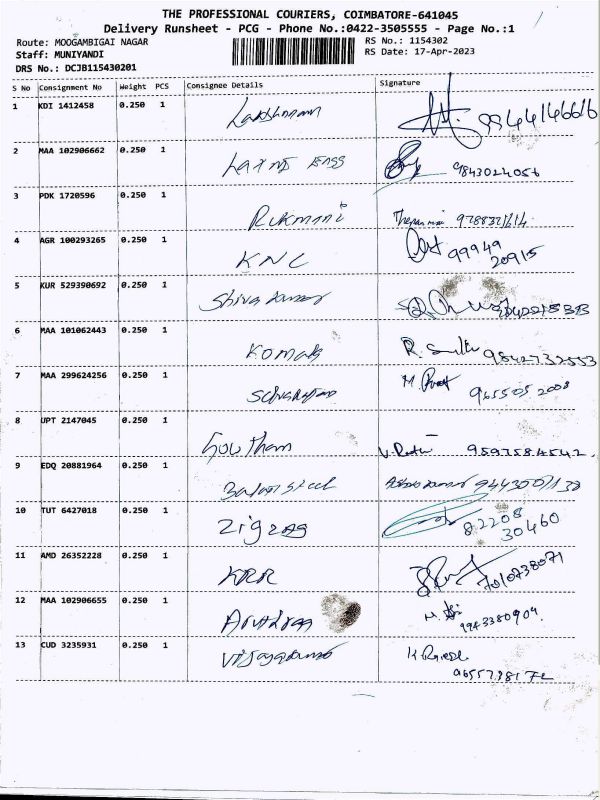 THE PROFESSIONAL COURIERS, COIMBATORE-641045
Delivery Runsheet - PCG - Phone No.:0422-3505555 - Page No.:1
Route: MOOGAMBIGAI NAGAR
Staff: MUNIYANDI
DRS No.: DCJB115430201
RS No.: 1154302
RS Date: 17-Apr-2023
S No Consignment No Weight PCS Consignee Details Signature
1 KDI 1412458 0.250 1 Lakshmanan 9944146616
2 MAA 102906662 0.250 1 Laxmi Engg 9843024056
3 PDK 1720596 0.250 1 Rukmani
4 AGR 100293265 0.250 1 KNC 99949
20915
5 KUR 529390692 0.250 1 Shiva Kumar
6 MAA 101062443 0.250 1 Komals R. 9842732553
7 MAA 299624256 0.250 1 M. 965505 2008
8 UPT 2147045 0.250 1 Gowtham 9597584542
9 EDQ 20881964 0.250 1 Balaji Steel
10 TUT 6427018 0.250 1 Zigzag 82208
30460
11 AMD 26352228 0.250 1 KRR 7010738071
12 MAA 102906655 0.250 1 9943380909
13 CUD 3235931 0.250 1 Vijayakumar K